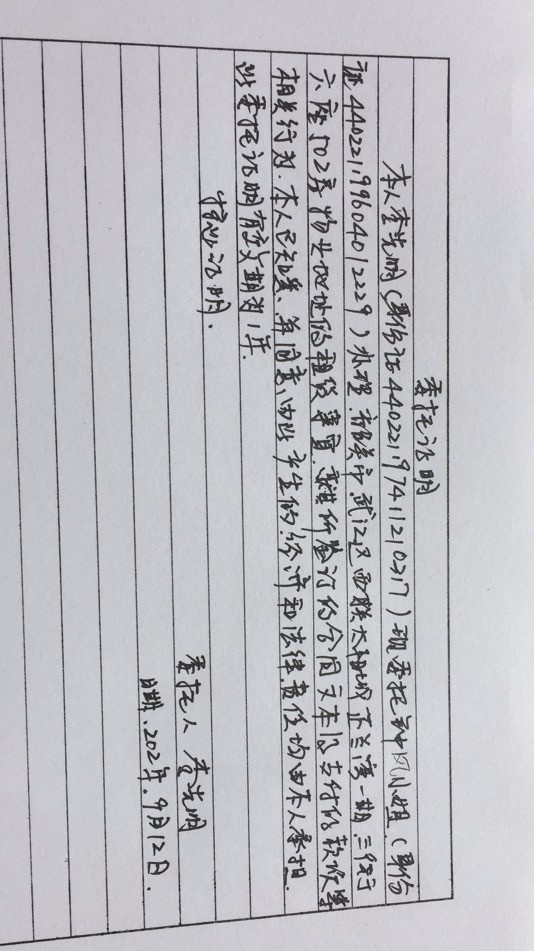 委托证明
本人李光明(身份证440221197411210217)现委托 小姐(身份
证440221199604012229)办理韶关市武江区西联太和城 芷兰湾一期三街
六座502房物业地址的租赁事宜 其所签订的合同文本及支付的款项等
相关行为.本人已知悉、并同意、由此产生的.经济和法律责任均由本人承担.
此委托证明有效期为1年.
特此证明.
委托人 李光明
日期、2021年.9月12日.